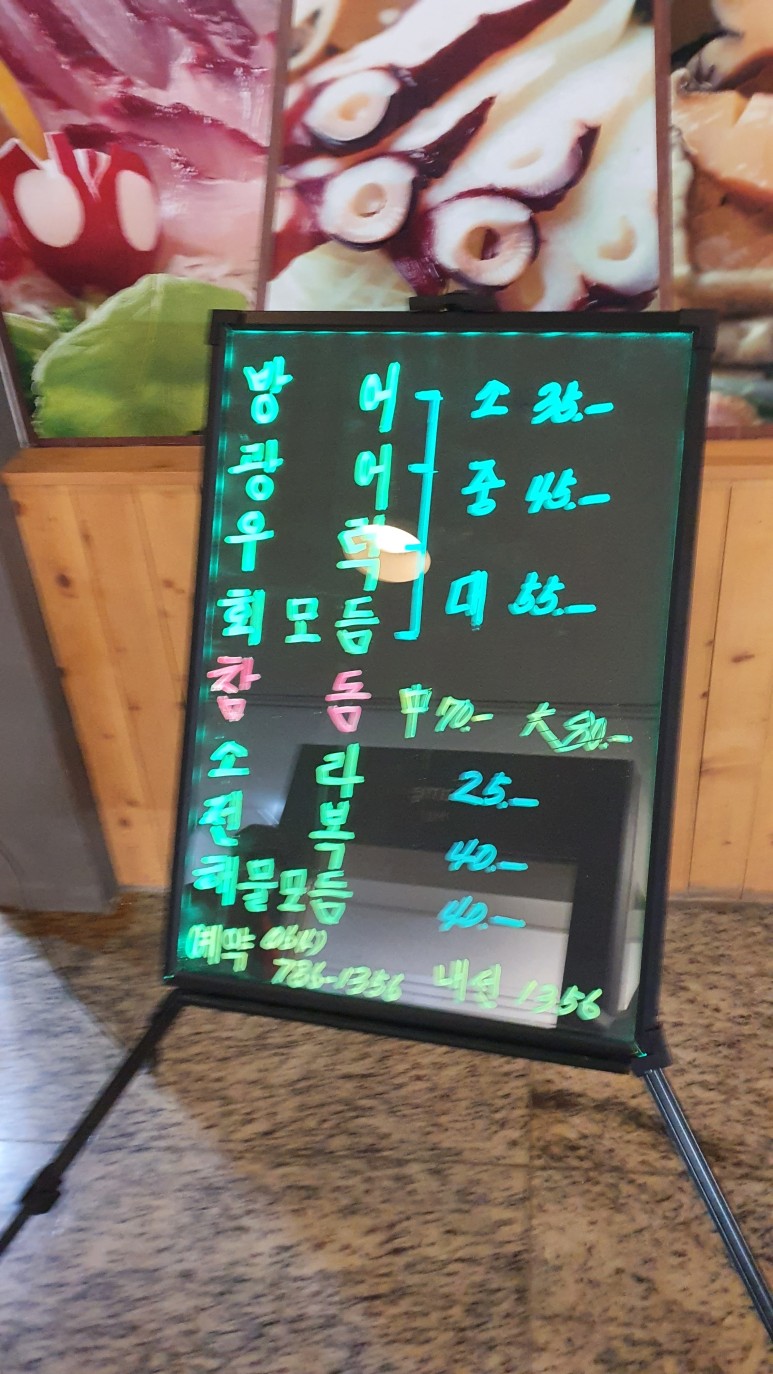 방어 소 35.-
광어 중 45.-
우럭
회모듬 대 55.-
참돔 中 70.- 大 80.-
소라 25.-
전복 40.-
해물모듬 40.-
예약 (064)
736-1356 내선 1356